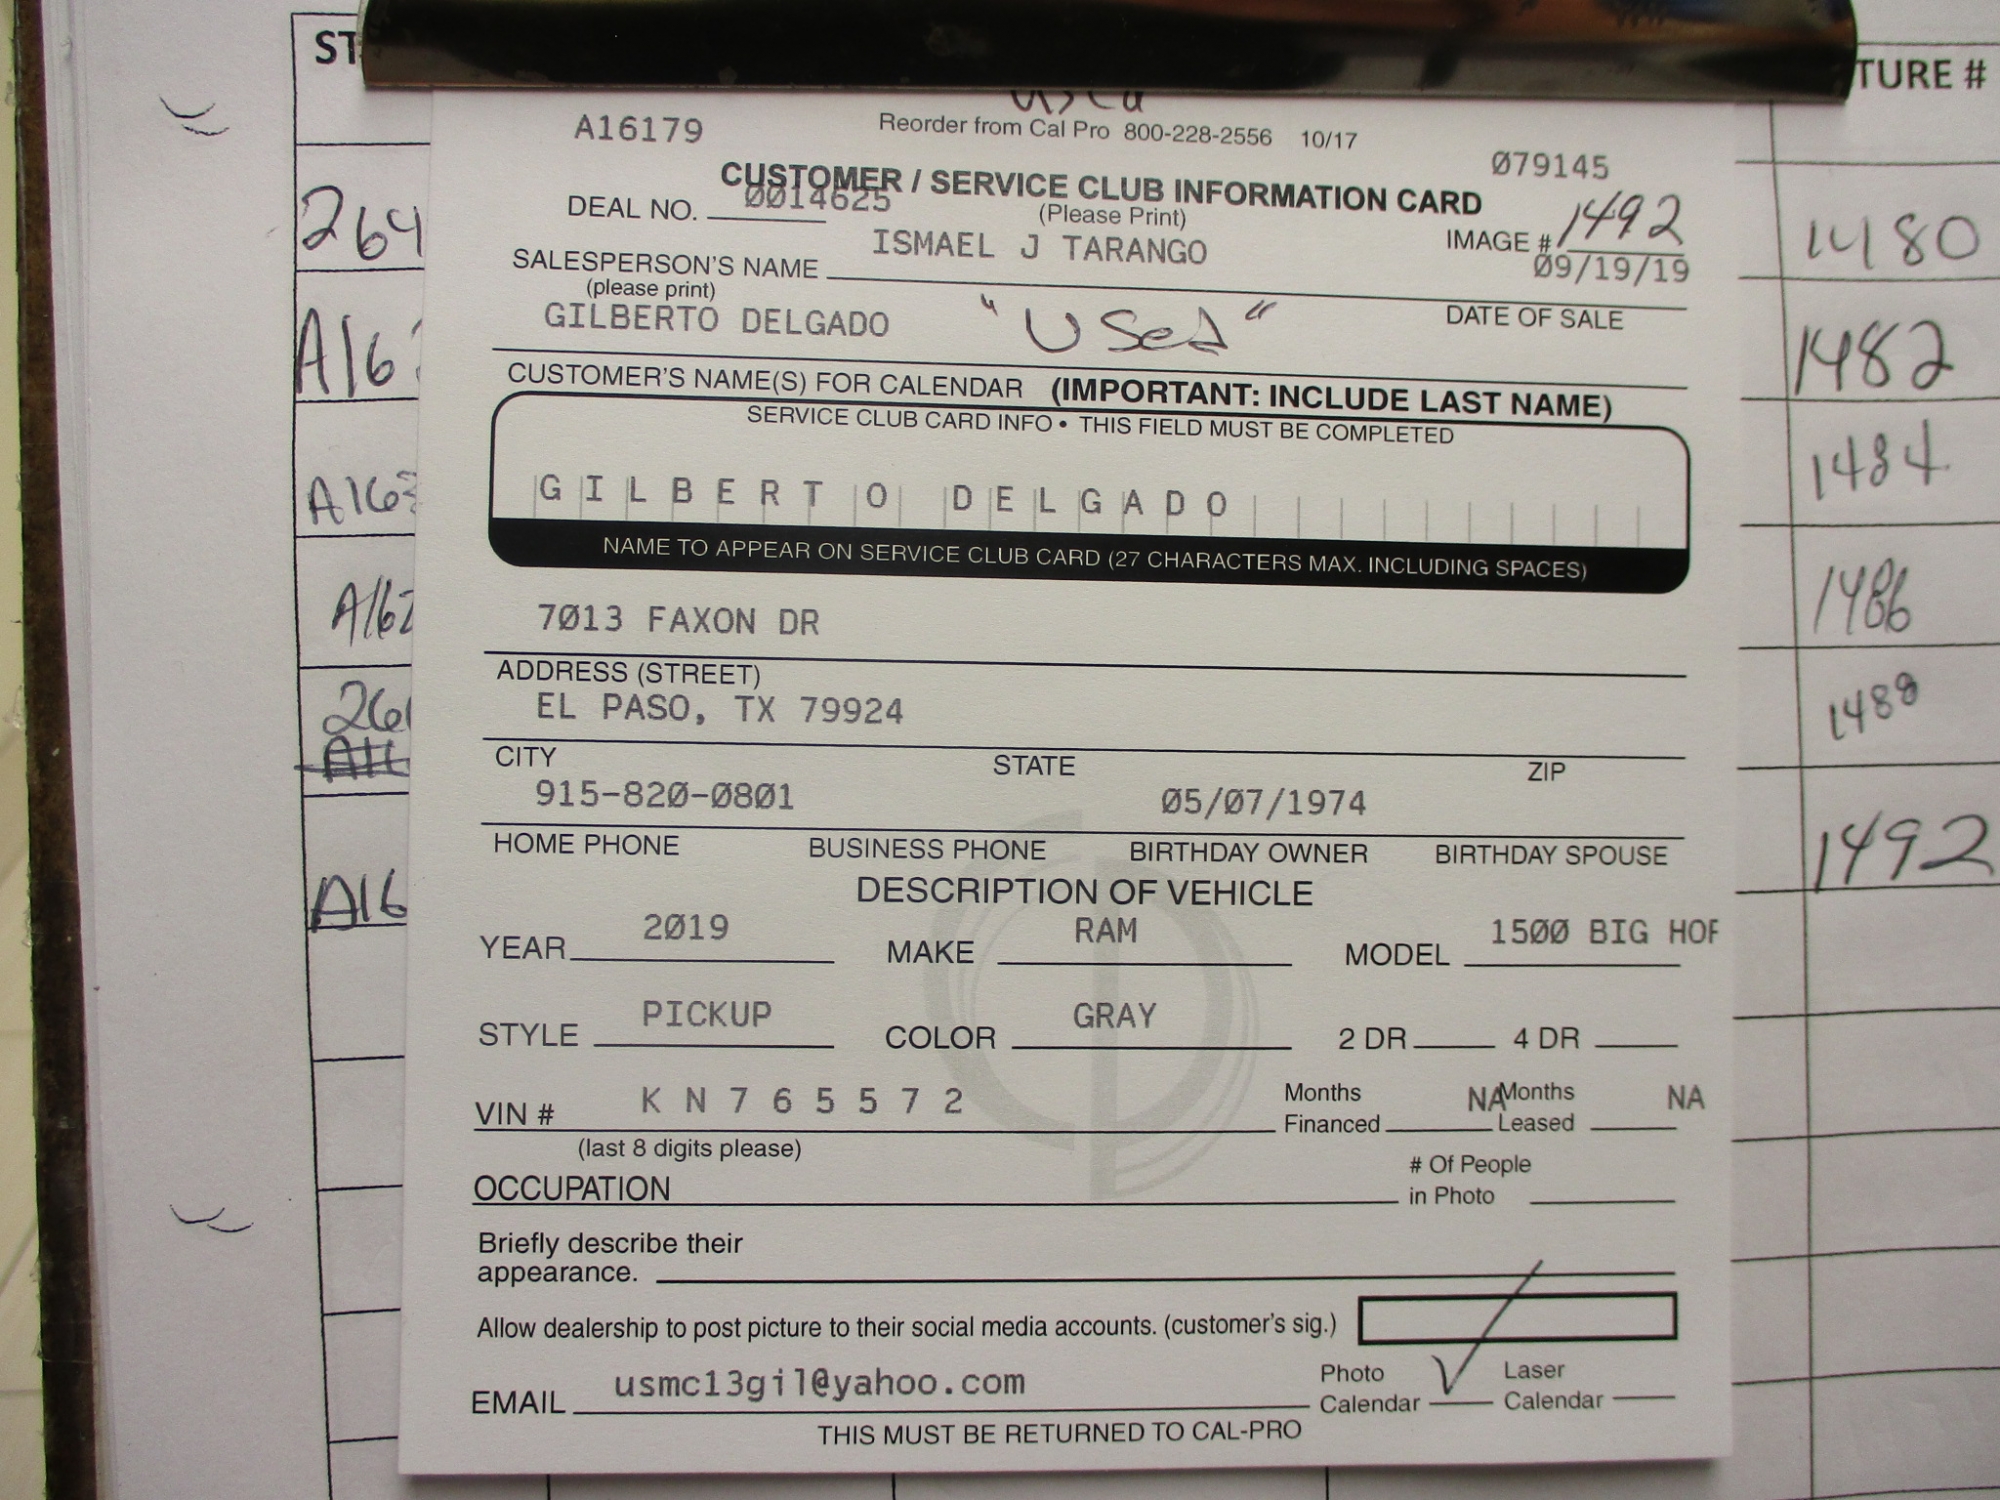 TURE #
A16179
Reorder from Cal Pro 800-228-2556 10/17
079145
CUSTOMER / SERVICE CLUB INFORMATION CARD
DEAL NO. 0014625
(Please Print)
IMAGE # 1492
SALESPERSON'S NAME ISMAEL J TARANGO
09/19/19
(please print)
DATE OF SALE
GILBERTO DELGADO "Used"
CUSTOMER'S NAME(S) FOR CALENDAR (IMPORTANT: INCLUDE LAST NAME)
SERVICE CLUB CARD INFO • THIS FIELD MUST BE COMPLETED
GILBERTO DELGADO
NAME TO APPEAR ON SERVICE CLUB CARD (27 CHARACTERS MAX. INCLUDING SPACES)
7013 FAXON DR
ADDRESS (STREET)
EL PASO, TX 79924
CITY STATE ZIP
915-820-0801 05/07/1974
HOME PHONE BUSINESS PHONE BIRTHDAY OWNER BIRTHDAY SPOUSE
DESCRIPTION OF VEHICLE
YEAR 2019 MAKE RAM MODEL 1500 BIG HOR
STYLE PICKUP COLOR GRAY 2 DR 4 DR
VIN # K N 7 6 5 5 7 2 Months Financed NA Months Leased NA
(last 8 digits please)
OCCUPATION # Of People in Photo
Briefly describe their
appearance.
Allow dealership to post picture to their social media accounts. (customer's sig.)
EMAIL usmc13gil@yahoo.com Photo Calendar √ Laser Calendar
THIS MUST BE RETURNED TO CAL-PRO
264
1480
A16
1482
A163
1484
A162
1486
26
1488
A16
1492